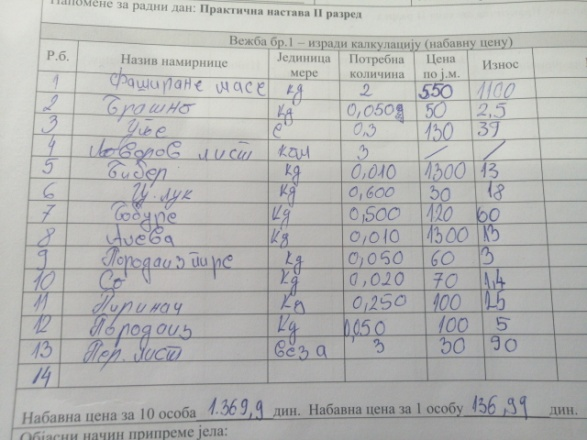 Напомене за радни дан: Практична настава II разред
Вежба бр.1 – изради калкулацију (набавну цену)
Р.б. Назив намирнице Јединица мере Потребна количина Цена по ј.м. Износ
1 Фаширане масе кд 2 550 1100
2 Брашно кд 0,050 50 2,5
3 Уље е 0,3 130 39
4 Ловоров лист ком 3 / /
5 Бибер кд 0,010 1300 13
6 Цр. лук кд 0,600 30 18
7 Бабуре кд 0,500 120 60
8 Алева кд 0,010 1300 13
9 Парадаиз пире кд 0,050 60 3
10 Со кд 0,020 70 1,4
11 Пиринач кд 0,250 100 25
12 Парадаиз кд 0,050 100 5
13 Пер. лист веза 3 30 90
14
Набавна цена за 10 особа 1.369,9 дин. Набавна цена за 1 особу 136,99 дин.
Објасни начин припреме јела: